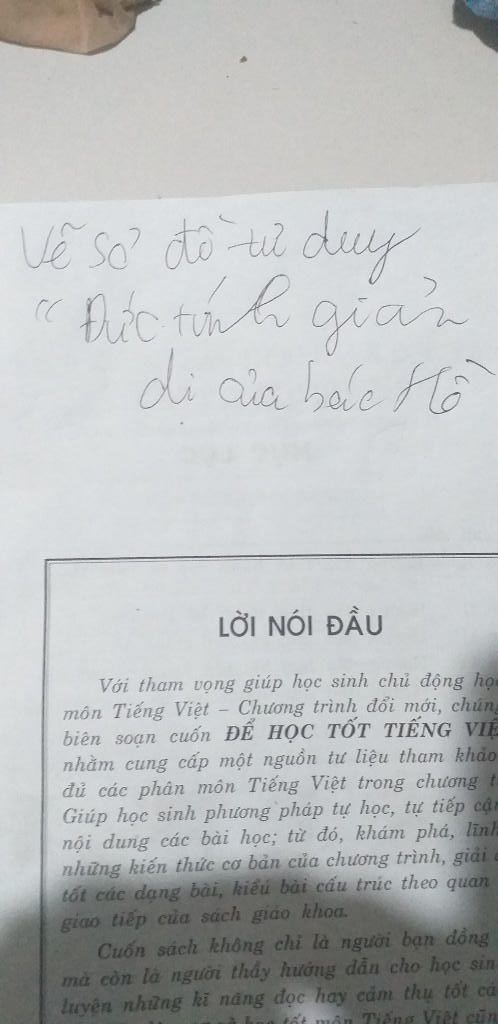 Vẽ sơ đồ tư duy
“ Đức tính giản
dị của bác Hồ
LỜI NÓI ĐẦU
Với tham vọng giúp học sinh chủ động học
môn Tiếng Việt – Chương trình đổi mới, chúng
biên soạn cuốn ĐỂ HỌC TỐT TIẾNG VIỆ
nhằm cung cấp một nguồn tư liệu tham khảo
đủ các phân môn Tiếng Việt trong chương t
Giúp học sinh phương pháp tự học, tự tiếp cận
nội dung các bài học; từ đó, khám phá, lĩnh
những kiến thức cơ bản của chương trình, giải
tốt các dạng bài, kiểu bài cấu trúc theo quan
giao tiếp của sách giáo khoa.
Cuốn sách không chỉ là người bạn đồng
mà còn là người thầy hướng dẫn cho học sin
luyện những kĩ năng đọc hay cảm thụ tốt cá
học tốt môn Tiếng Việt cũng